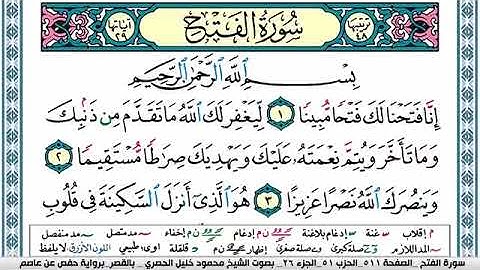 ترتيبها ٤٨ سورة الفتح آياتها ٢٩
بِسْمِ اللَّهِ الرَّحْمَٰنِ الرَّحِيمِ
إِنَّا فَتَحْنَا لَكَ فَتْحًا مُّبِينًا ١ لِّيَغْفِرَ لَكَ اللَّهُ مَا تَقَدَّمَ مِن ذَنبِكَ
وَمَا تَأَخَّرَ وَيُتِمَّ نِعْمَتَهُ عَلَيْكَ وَيَهْدِيَكَ صِرَاطًا مُّسْتَقِيمًا ٢
وَيَنصُرَكَ اللَّهُ نَصْرًا عَزِيزًا ٣ هُوَ الَّذِي أَنزَلَ السَّكِينَةَ فِي قُلُوبِ
م إقلاب س غنة س إدغام بلاغنة ن م إدغام ن م إخفاء مد متصل مد منفصل
المد اللازم صلة كبرى صلة صغرى إظهار ن م ق قلقلة اوى طبيعي اللون الأزرق لا يلفظ
سورة الفتح _ الصفحة ٥١١ _ الحزب ٥١ _ الجزء ٢٦ _ بصوت الشيخ محمود خليل الحصري _ بالقصر_برواية حفص عن عاصم